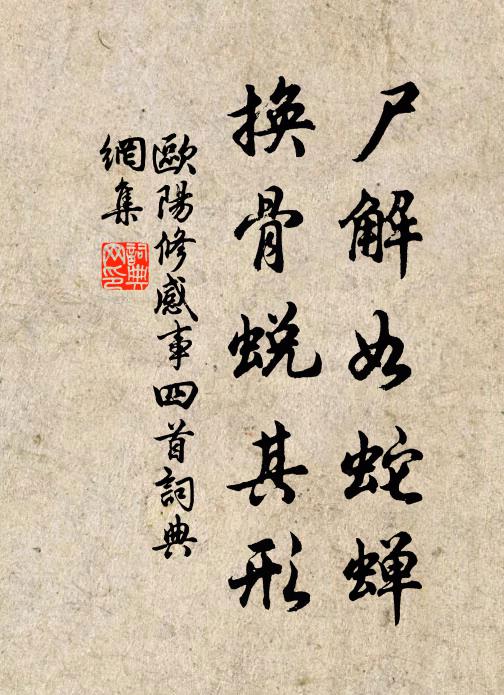 尸解如蛇蝉
换骨蜕其形
歐陽修感事四首詞典
網集
詞典网印